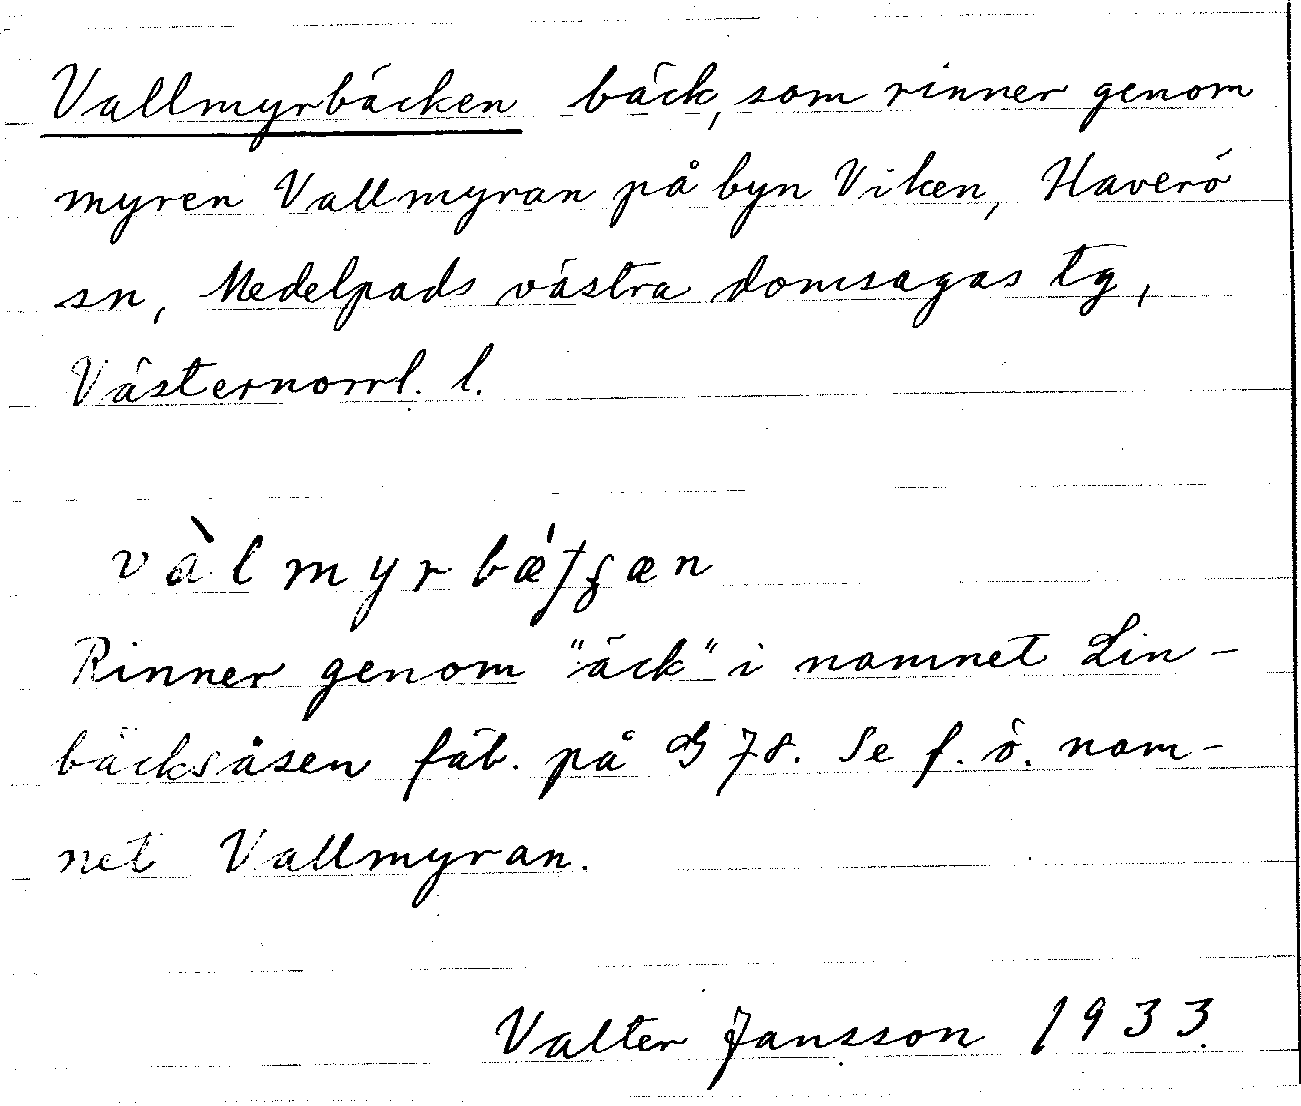 Vallmyrbäcken bäck, som rinner genom
myren Vallmyran på byn Viken, Haverö
sn, Medelpads västra domsagas tg,
Västernorrl. l.
Rinner genom "äck" i namnet Lin-
bäcksåsen fäb. på G 78. Se f. ö. nam-
net Vallmyran.
Valter Jansson 1933.